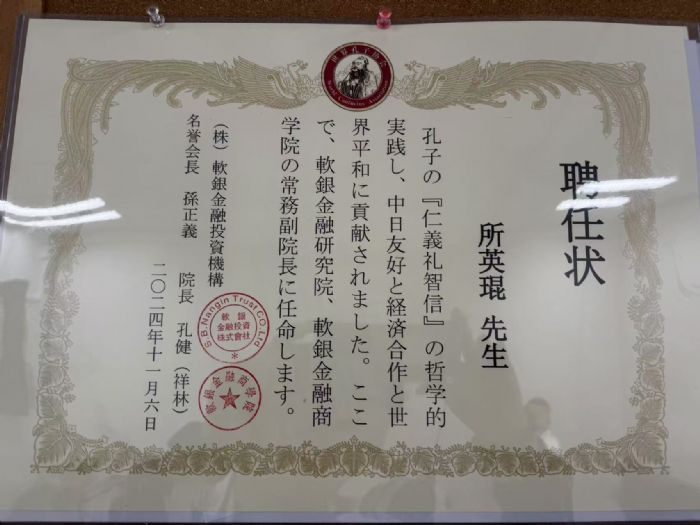 世界孔子協会
World Confucius Association
聘任状
所英琨 先生
孔子の『仁義礼智信』の哲学的
実践し、中日友好と経済合作と世
界平和に貢献されました。ここ
で、軟銀金融研究院、軟銀金融商
学院の常務副院長に任命します。
(株)軟銀金融投資機構
名誉会長 孫正義 院長 孔健(祥林)
二〇二四年十一月六日
S.B.Nangin Trust CO.Ltd
軟銀
金融投資
株式會社
軟銀金融商學院